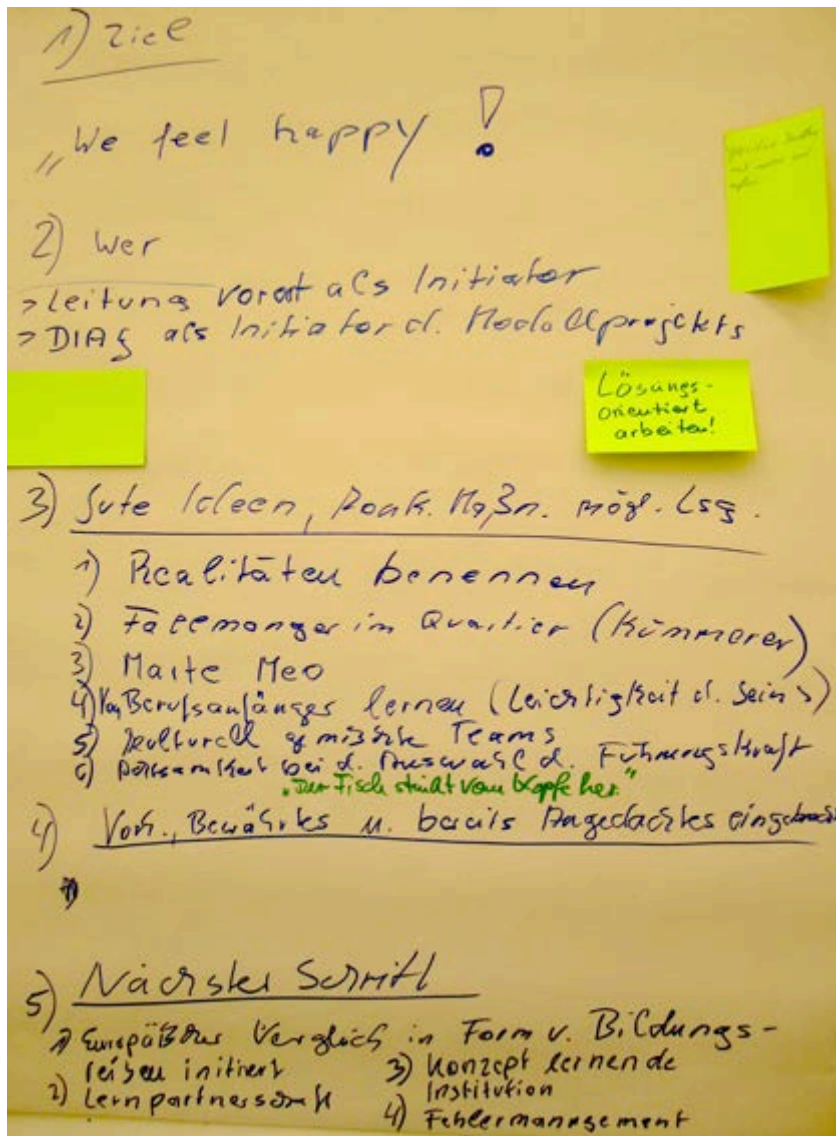 1) Ziel
„We feel happy!
2) Wer
> Leitung vorort als Initiator
> DIAG als Initiator d. Modellprojekts
Lösungs-
orientiert
arbeiten!
3) Gute Ideen, konk. Maßn. mögl. Lsg.
1) Realitäten benennen
2) Fallmanger im Quartier (Kümmerer)
3) Marte Meo
4) Von Berufsanfänger lernen (Leichtigkeit d. Seins)
5) kulturell gemischte Teams
6) bei d. Auswahl d. Führungskraft
„Der Fisch stinkt vom Kopfe her."
4) Vorh., Bewährtes u. bereits Angedachtes eingebracht
1)
5) Nächster Schritt
1) Europäischer Vergleich in Form v. Bildungs-
reisen initiiert
2) Lernpartnerschaft
3) Konzept lernende
Institution
4) Fehlermanagement